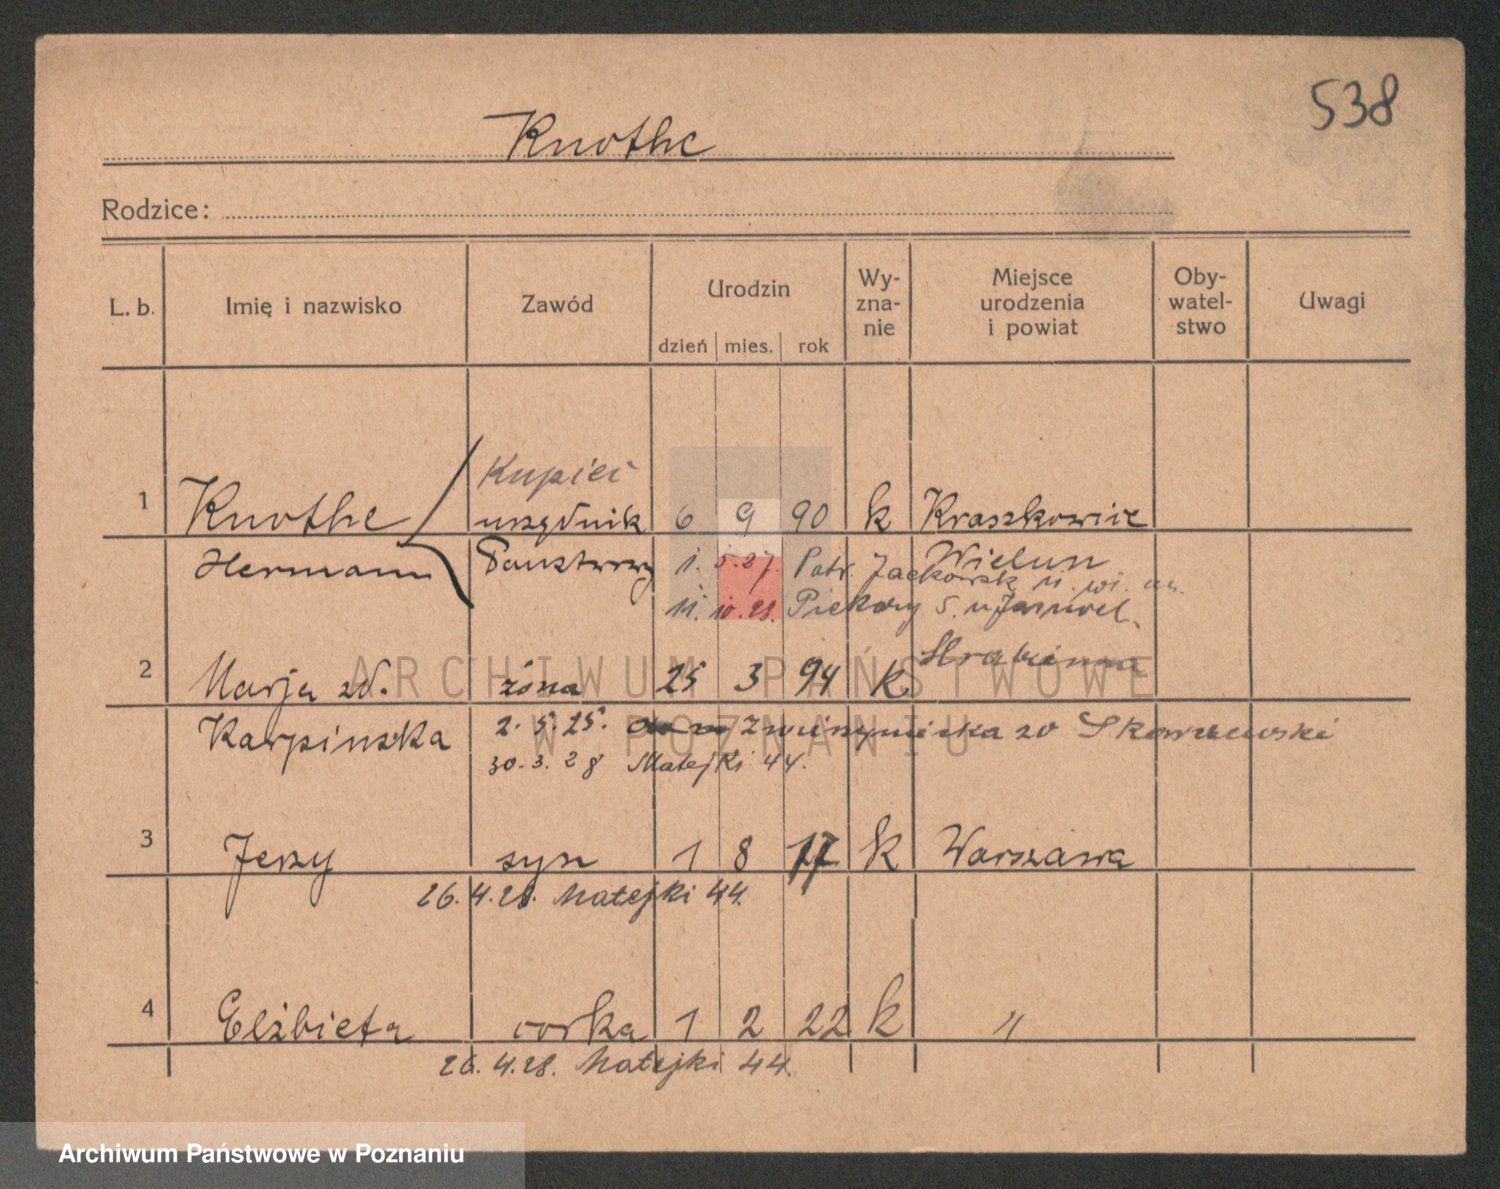 538
Knothe
Rodzice:
L. b. Imię i nazwisko Zawód Urodzin dzień mies. rok Wy- zna- nie Miejsce urodzenia i powiat Oby- watel- stwo Uwagi
Kupiec
1 Knothe urzędnik 6 9 90 k Kraszkowice
Hermann Państwowy 1. 5.27. Patr. Jackowsk Wieluń
11. 10.28. Piekary 5.
2 Marja zd. żona 25 3 94 k
Karpinska 2. 5. 25. Zwierzyniecka 20 Skorzewski
30. 3. 28 Matejki 44.
3 Jerzy syn 1 8 17 k Warszawa
26. 4. 28. Matejki 44.
4 Elżbieta corka 1 2 22 k "
26. 4. 28. Matejki 44.
ARCHIWUM PAŃSTWOWE
W POZNANIU
Archiwum Państwowe w Poznaniu